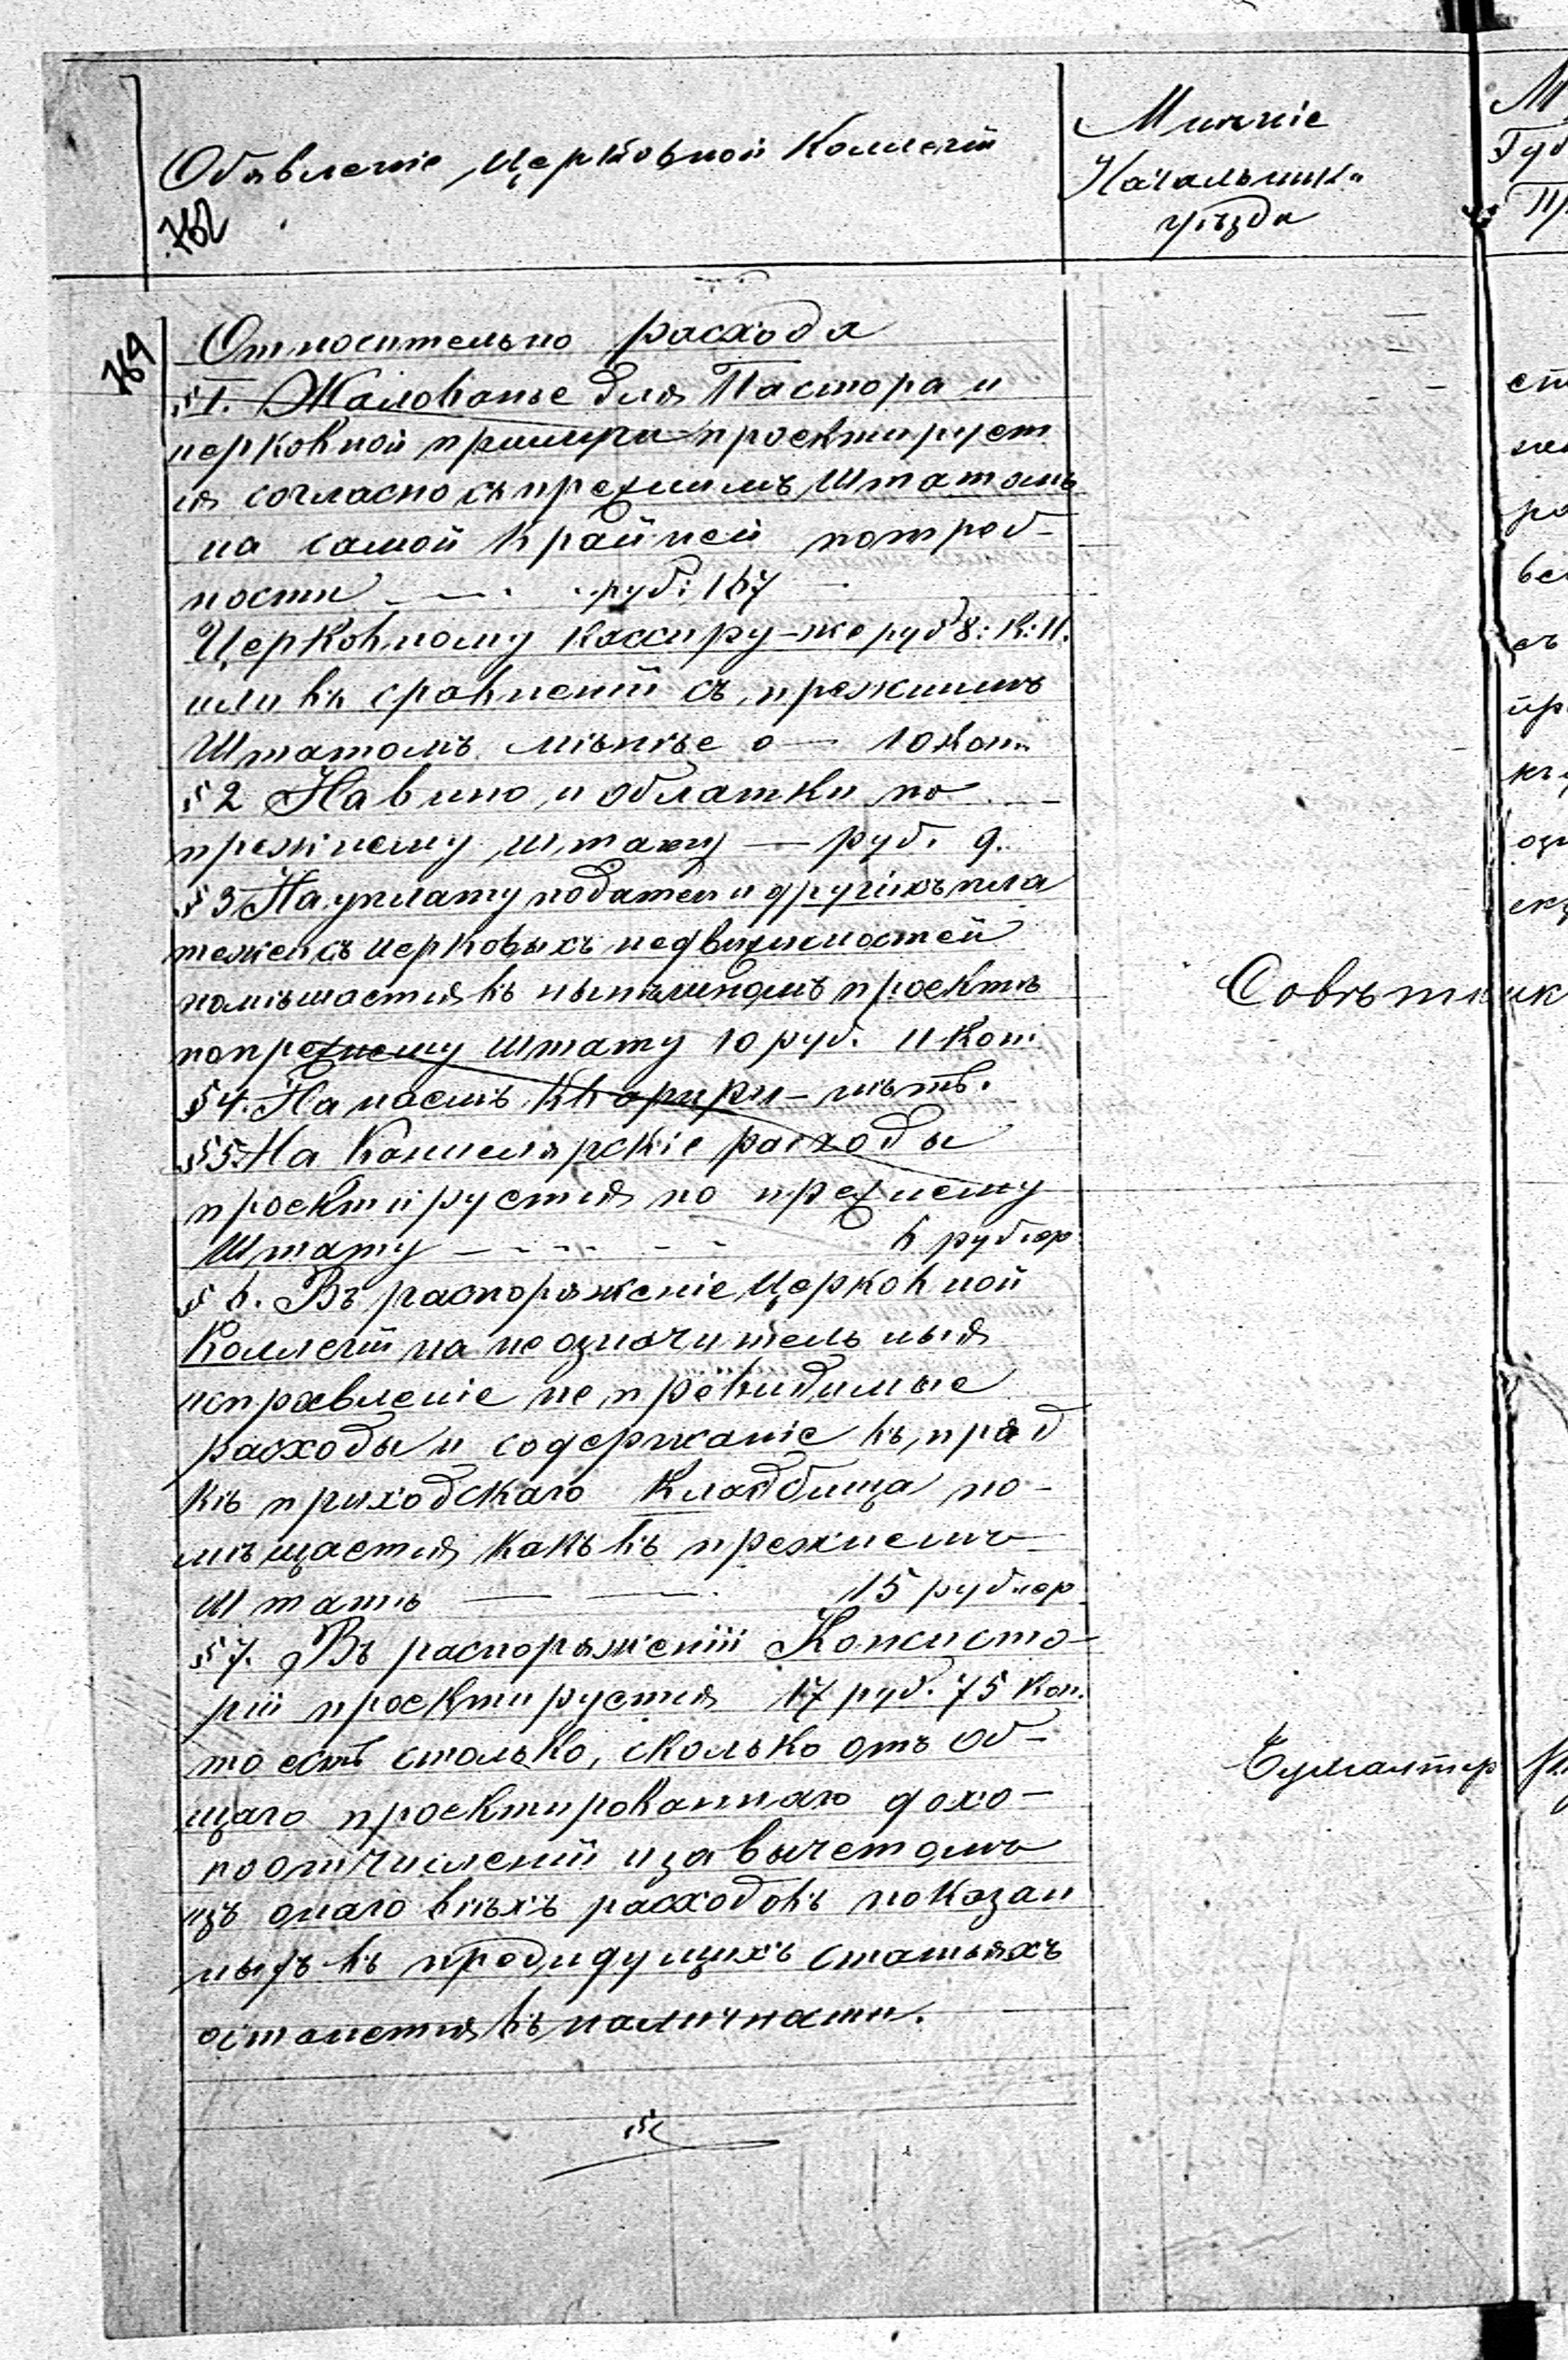 Обявленіе Церковной Коллегіи
762
Мнѣніе
Начальника
уѣзда
М
Губ
Пр
764
Относительно расхода
§ 1. Жалованье для Пастора и
церковной прислуги проектирует
ся согласно съ прежнимъ Штатомъ
на самой крайней потреб-
ности руб: 167
Церковному Кассиру-же руб 8: к: 11.
или въ сравненіи съ прежнимъ
Штатомъ мѣнѣе о — 10 коп.
§ 2 На вино и облатки по
прежнему штату — руб. 9.
§ 3 На уплату податей и другихъ пла
тежей съ церковыхъ недвижимостей
помѣщается въ нынѣшномъ проектѣ
по прежнему Штату 10 руб. 11 коп.
§ 4. На наемъ — нѣтъ.
§ 5. На Канцелярскіе расходы
проектируется по прежнему
Штату 6 руб сер
§ 6. Въ распоряженіе Церковной
Коллегіи на не означительныя
исправленіе не превидимые
расходы и содержаніе въ пряд
кѣ приходскаго Кладбища по-
мѣщается какъ въ прежнемъ
Штатѣ 15 руб сер
§ 7. Въ распоряженіи Консисто-
ріи проектируется 17 руб. 75 Коп.
то есть столько, сколько отъ об-
щаго проектированнаго дохо-
по отчисленіи и за вычетомъ
изъ онаго всѣхъ расходовъ показан
ныхъ въ предидущихъ статьяхъ
останется въ наличности.
Совѣтник
Бухгалтер